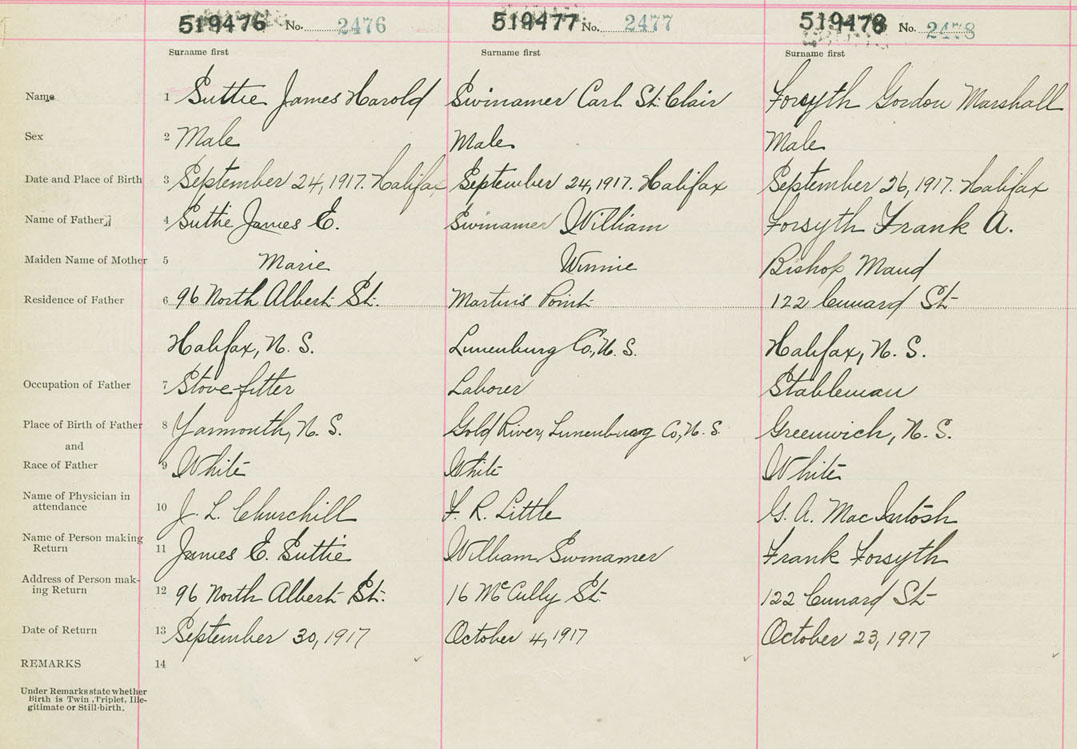 519476 No. 2476 519477 No. 2477 519478 No. 2478
Surname first Surname first Surname first
Name 1 Suttie James Harold Swinamer Carl St. Clair Forsyth Gordon Marshall
Sex 2 Male Male Male
Date and Place of Birth 3 September 24, 1917. Halifax September 24, 1917. Halifax September 26, 1917. Halifax
Name of Father 4 Suttie James E. Swinamer William Forsyth Frank A.
Maiden Name of Mother 5 Marie Winnie Bishop Maud
Residence of Father 6 96 North Albert St. Martins Point 122 Cunard St
Halifax, N. S. Lunenburg Co, N. S. Halifax, N. S.
Occupation of Father 7 Stove-fitter Laborer Stableman
Place of Birth of Father 8 Yarmouth, N. S. Gold River, Lunenburg Co, N. S. Greenwich, N. S.
and
Race of Father 9 White White White
Name of Physician in
attendance 10 J. L. Churchill F. R. Little G. A. MacIntosh
Name of Person making
Return 11 James E. Suttie William Swinamer Frank Forsyth
Address of Person mak-
ing Return 12 96 North Albert St. 16 McCully St. 122 Cunard St
Date of Return 13 September 30, 1917 October 4, 1917 October 23, 1917
REMARKS 14
Under Remarks state whether
Birth is Twin, Triplet, Ille-
gitimate or Still-birth.